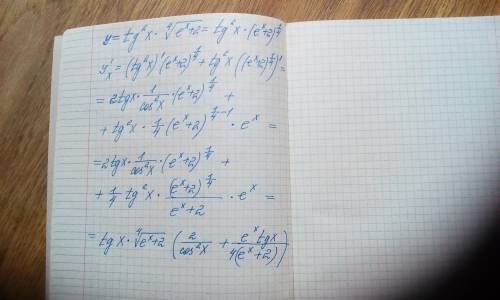 y = tg²x · ∜(eˣ+2) = tg²x · (eˣ+2)^¼
y'ₓ = (tg²x)' (eˣ+2)^¼ + tg²x ((eˣ+2)^¼)' =
= 2tgx · 1/cos²x · (eˣ+2)^¼ +
+ tg²x · ¼ (eˣ+2)^(¼-1) · eˣ =
= 2tgx · 1/cos²x · (eˣ+2)^¼ +
+ ¼ tg²x · (eˣ+2)^¼/(eˣ+2) · eˣ =
= tgx · ∜(eˣ+2) (2/cos²x + eˣtgx/4(eˣ+2))